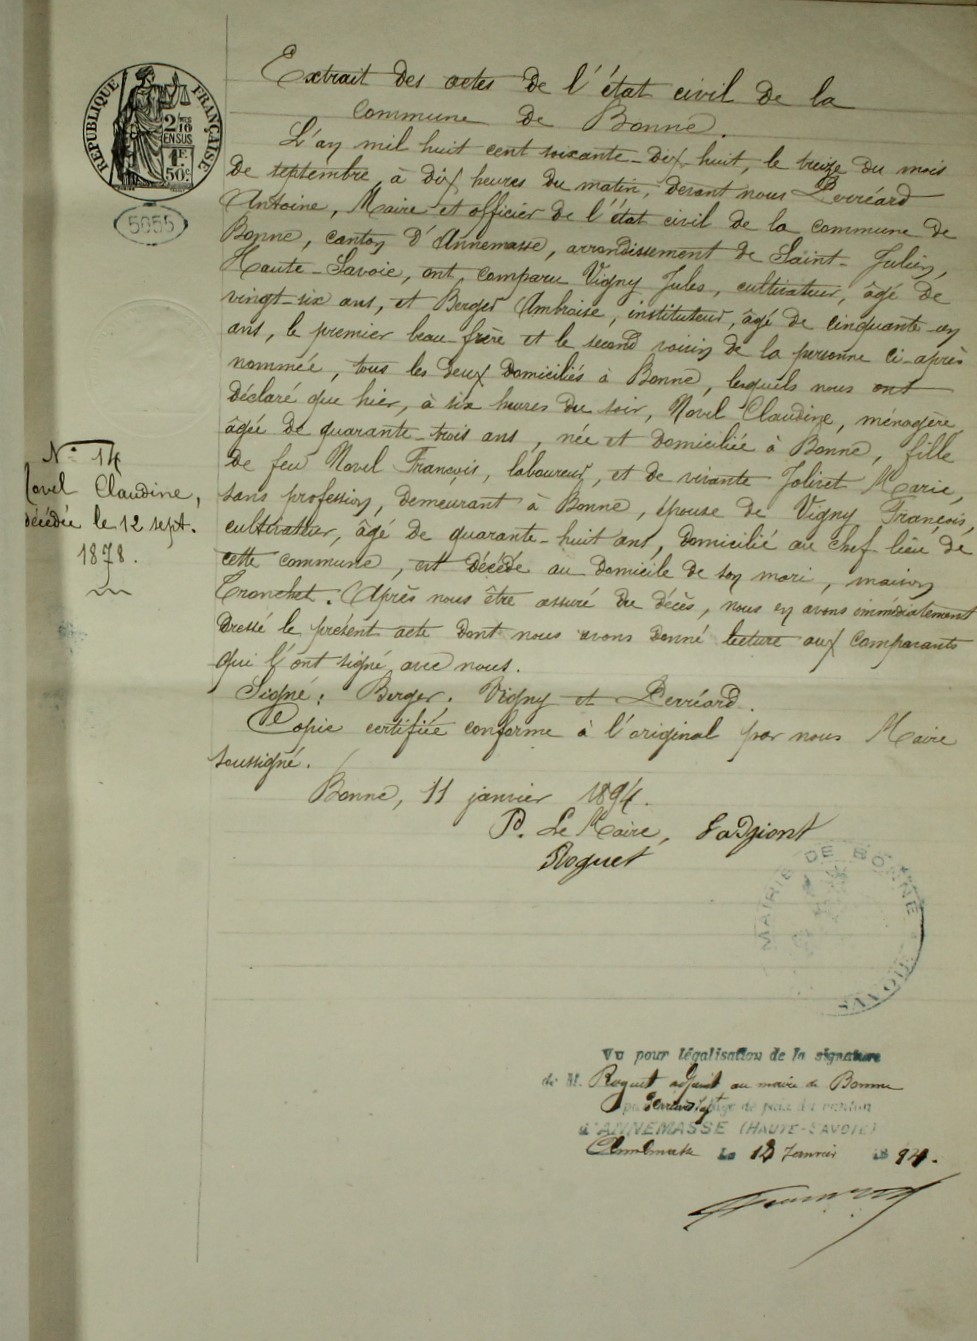 RÉPUBLIQUE FRANÇAISE
2/10
EN SUS
1F
50c
5655
Extrait des actes de l'état civil de la
commune de Bonne.
L'an mil huit cent soixante-dix-huit, le treize du mois
de septembre, à dix heures du matin, devant nous Perréard
Antoine, Maire et officier de l'état civil de la commune de
Bonne, canton d'Annemasse, arrondissement de Saint-Julien,
Haute-Savoie, ont comparu Vigny Jules, cultivateur, âgé de
vingt-six ans, et Berger Ambroise, instituteur, âgé de cinquante-un
ans, le premier beau-frère et le second voisin de la personne ci-après
nommée, tous les deux domiciliés à Bonne, lesquels nous ont
déclaré que hier, à six heures du soir, Novel Claudine, ménagère
âgée de quarante-trois ans, née et domiciliée à Bonne, fille
de feu Novel François, laboureur, et de vivante Jolivet Marie,
sans profession, demeurant à Bonne, épouse de Vigny François,
cultivateur, âgé de quarante-huit ans, domicilié au chef lieu de
cette commune, est décédé au domicile de son mari, maison
Tronchet. Après nous être assuré du décès, nous en avons immédiatement
dressé le présent acte dont nous avons donné lecture aux comparants
qui l'ont signé avec nous.
Signé: Berger. Vigny et Perréard.
Copie certifiée conforme à l'original par nous Maire
soussigné.
Bonne, 11 janvier 1894.
P. Le Maire, l'adjoint
Roguet
N° 14
Novel Claudine,
décédée le 12 sept.
1878.
MAIRIE DE BONNE
SAVOIE
Vu pour légalisation de la signature
de M. Roguet adjoint au maire de Bonne
par juge de paix du canton
d'ANNEMASSE (HAUTE-SAVOIE)
Annemasse le 12 Janvier 1894.